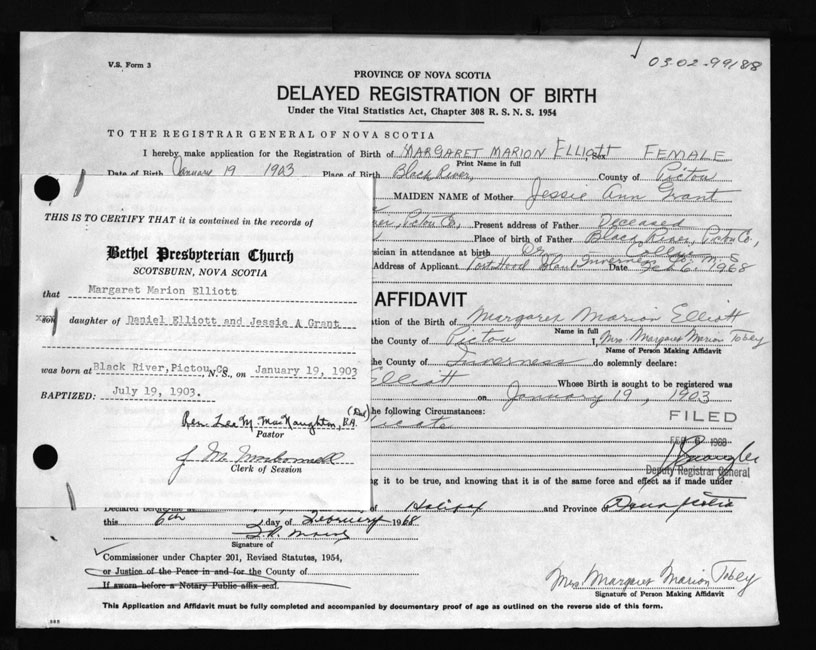 V.S. Form 3
0302-99188
PROVINCE OF NOVA SCOTIA
DELAYED REGISTRATION OF BIRTH
Under the Vital Statistics Act, Chapter 308 R. S. N. S. 1954
TO THE REGISTRAR GENERAL OF NOVA SCOTIA
I hereby make application for the Registration of Birth of MARGARET MARION Elliott, Sex FEMALE
Print Name in full
Date of Birth January 19 1903 Place of Birth Black River, County of Pictou
MAIDEN NAME of Mother Jessie Ann Grant
Pictou Co., Present address of Father Deceased
Place of birth of Father Black River, Pictou Co.,
sician in attendance at birth Dr.
Address of Applicant Port Hood Island Inverness Co. N.S. Date Feb 6, 1968
THIS IS TO CERTIFY THAT it is contained in the records of
Bethel Presbyterian Church
SCOTSBURN, NOVA SCOTIA
that Margaret Marion Elliott
son daughter of Daniel Elliott and Jessie A Grant
was born at Black River, Pictou, Co N.S., on January 19, 1903
BAPTIZED: July 19, 1903.
Rev. Lea M. MacNaughton, B.A.
Pastor
Clerk of Session
AFFIDAVIT
tion of the Birth of Margaret Marion Elliott
Name in full
the County of Pictou I, Mrs. Margaret Marion Tobey
Name of Person Making Affidavit
the County of Inverness do solemnly declare:
Elliott Whose Birth is sought to be registered was
on January 19, 1903
he following Circumstances:
icate
FILED
FEB 1968
Deputy Registrar General
g it to be true, and knowing that it is of the same force and effect as if made under
Declared before me at of Halifax and Province of Nova Scotia
this 6th day of February 1968
Signature of
Commissioner under Chapter 201, Revised Statutes, 1954,
or Justice of the Peace in and for the County of
If sworn before a Notary Public affix seal.
Mrs Margaret Marion Tobey
Signature of Person Making Affidavit
This Application and Affidavit must be fully completed and accompanied by documentary proof of age as outlined on the reverse side of this form.